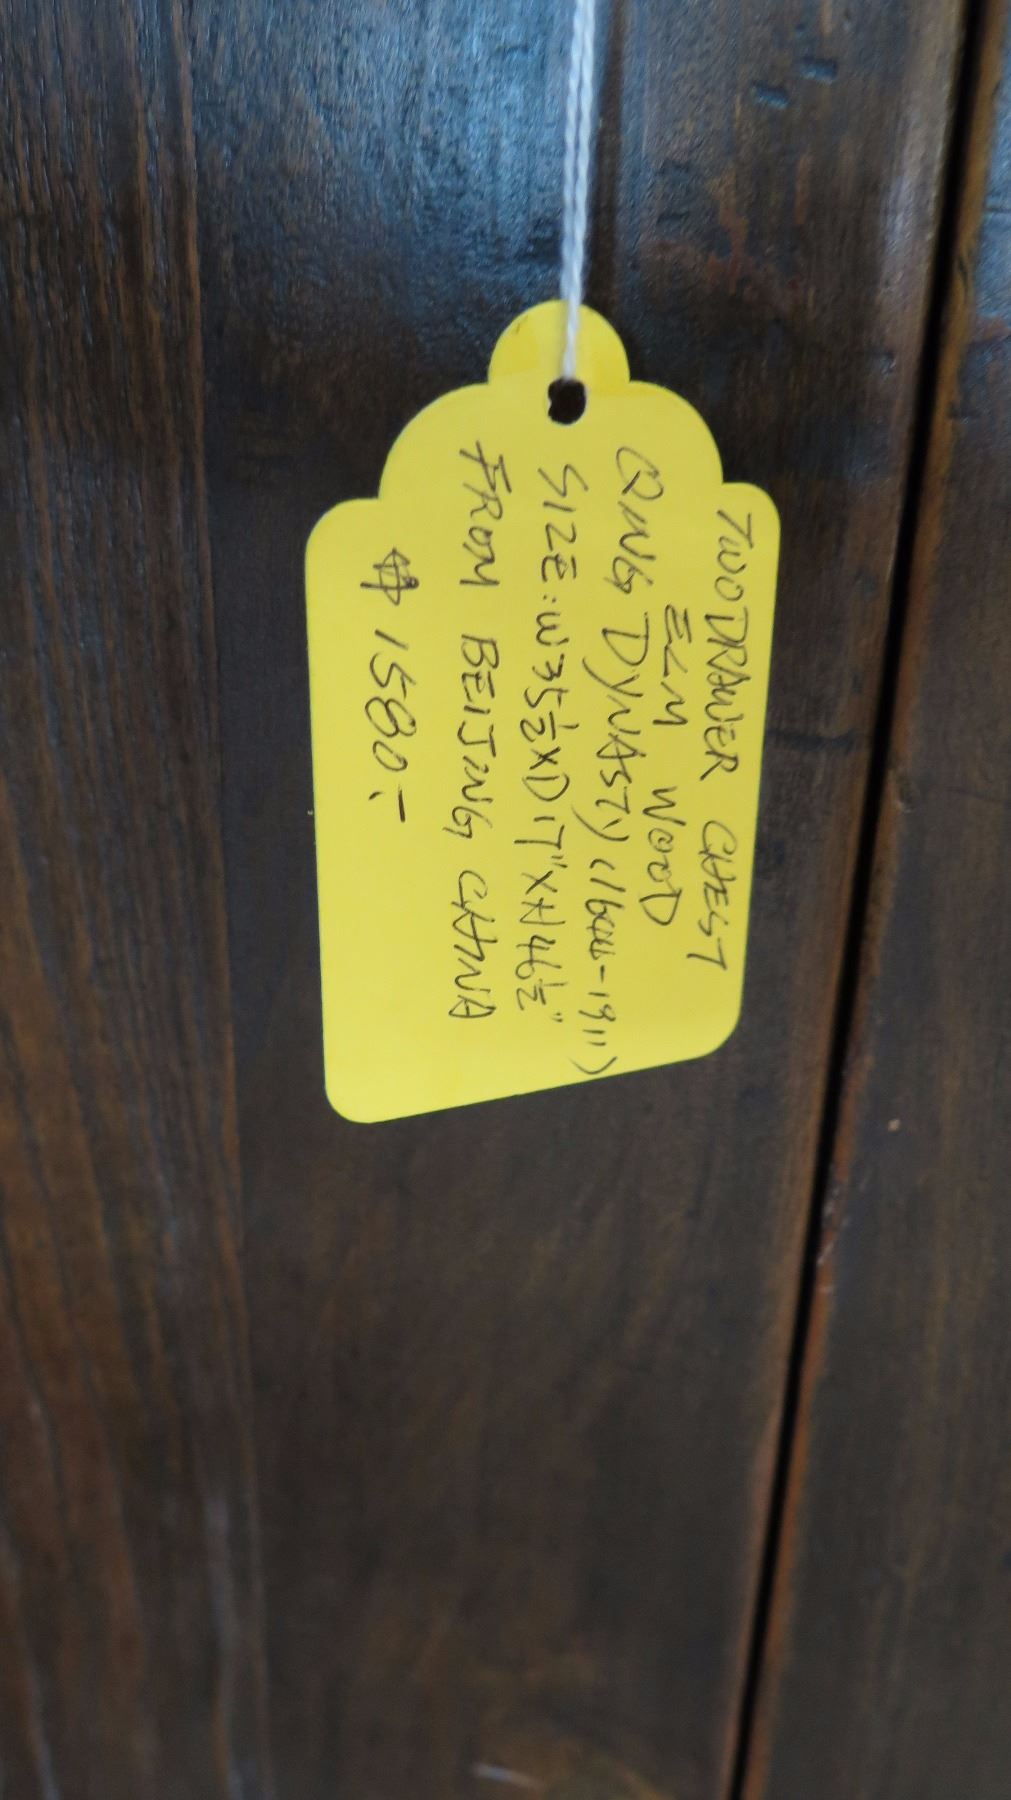 TWO DRAWER CHEST
ELM WOOD
QING DYNASTY (1644-1911)
SIZE: W35½ X D17" X H46½"
FROM BEIJING CHINA
$1580.-